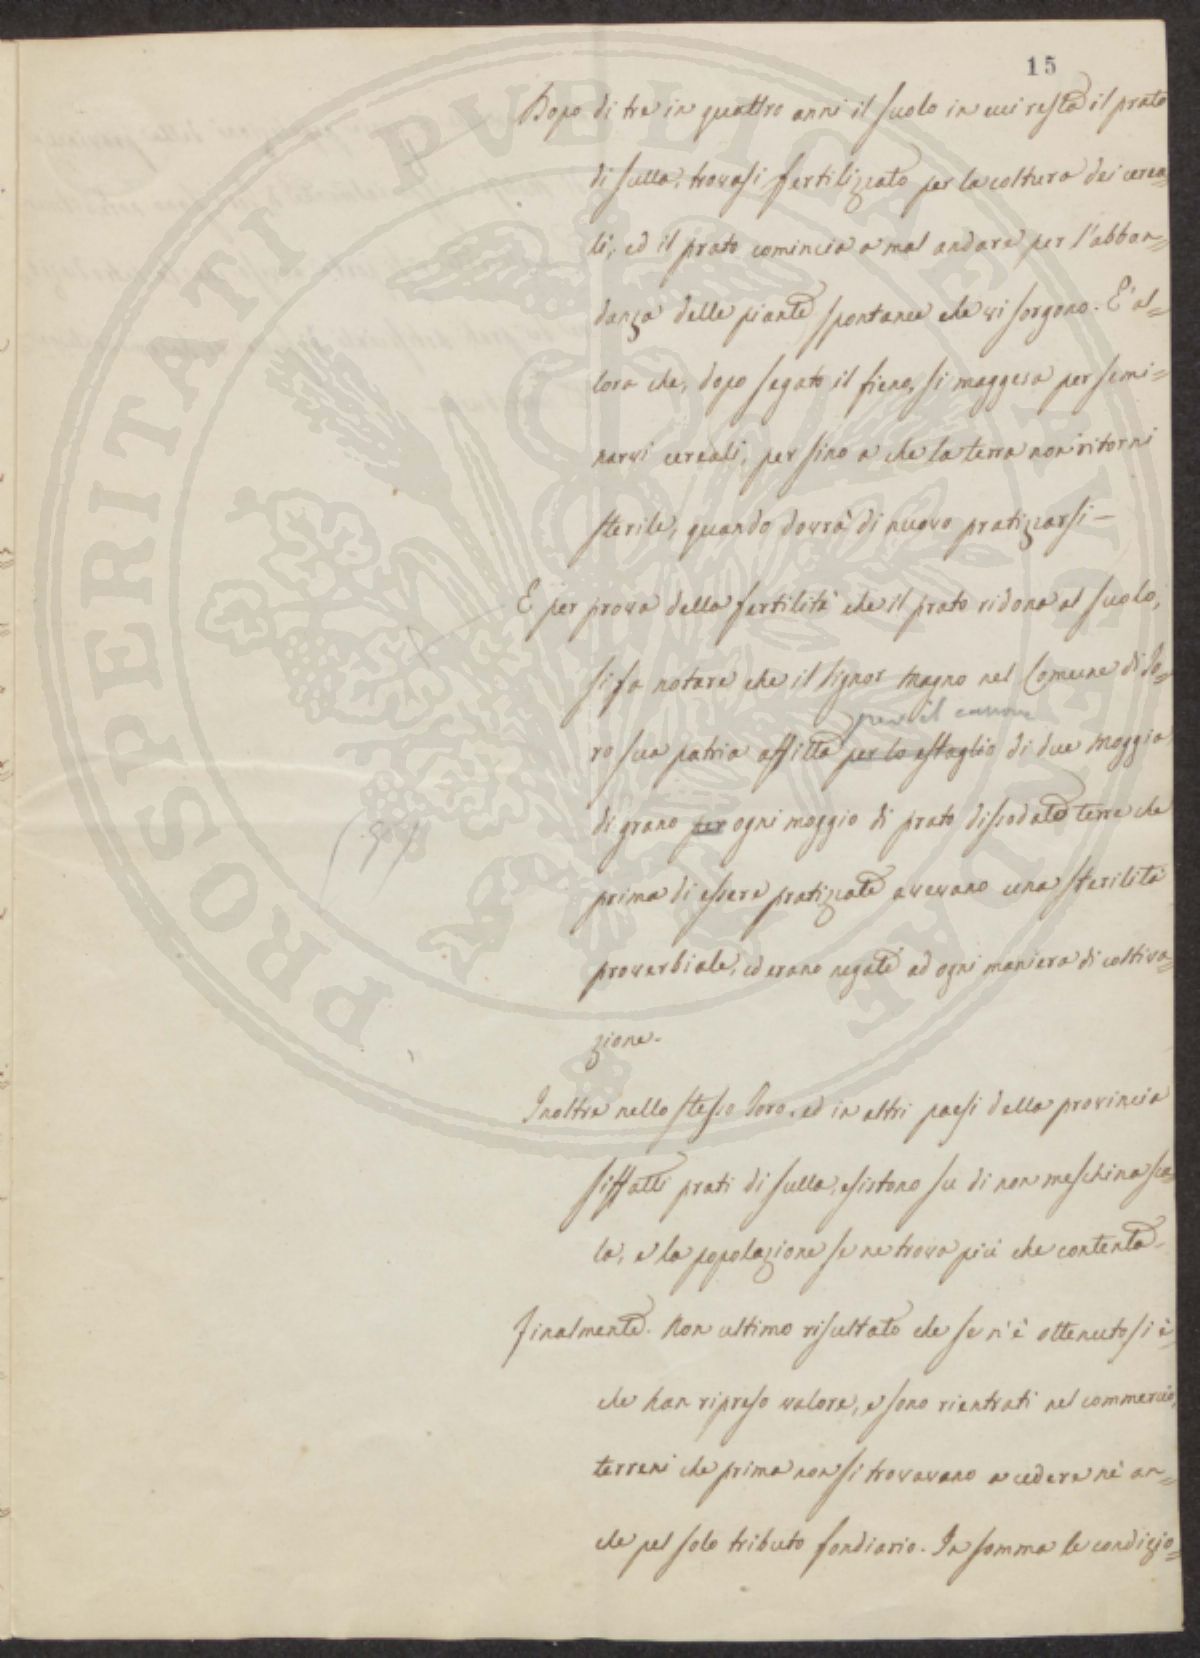 15
Dopo di tre in quattro anni il suolo in cui resta il prato
di sulla, trovasi fertilizzato per la coltura dei cerea-
li, ed il prato comincia a mal andare per l'abbon-
danza delle piante spontanee che vi sorgono. E' al=
lora che, dopo segato il fieno, si maggesa per semi=
narvi cereali, per sino a che la terra non ritorni
sterile, quando dovrà di nuovo pratizzarsi—
E per prova della fertilità che il prato ridona al suolo,
si fa notare che il Signor Magno nel Comune di Jo=
per il canone
ro sua patria affitta per lo estaglio di due moggia
di grano per ogni moggio di prato dissodato terre che
prima di essere pratizzate avevano una sterilità
proverbiale, ed erano negate ad ogni maniera di coltiva=
zione.
Inoltre nello stesso Joro, ed in altri paesi della provincia
siffatti prati di sulla, esistono su di non meschina sca=
la, e la popolazione se ne trova più che contenta.
Finalmente. Non ultimo risultato che se n'è ottenuto si è
che han ripreso valore, e sono rientrati nel commercio,
terreni che prima non si trovavano a cedere nè an=
che pel solo tributo fondiario. In somma le condizio=
PROSPERITATI PUBLICAE AUGENDAE